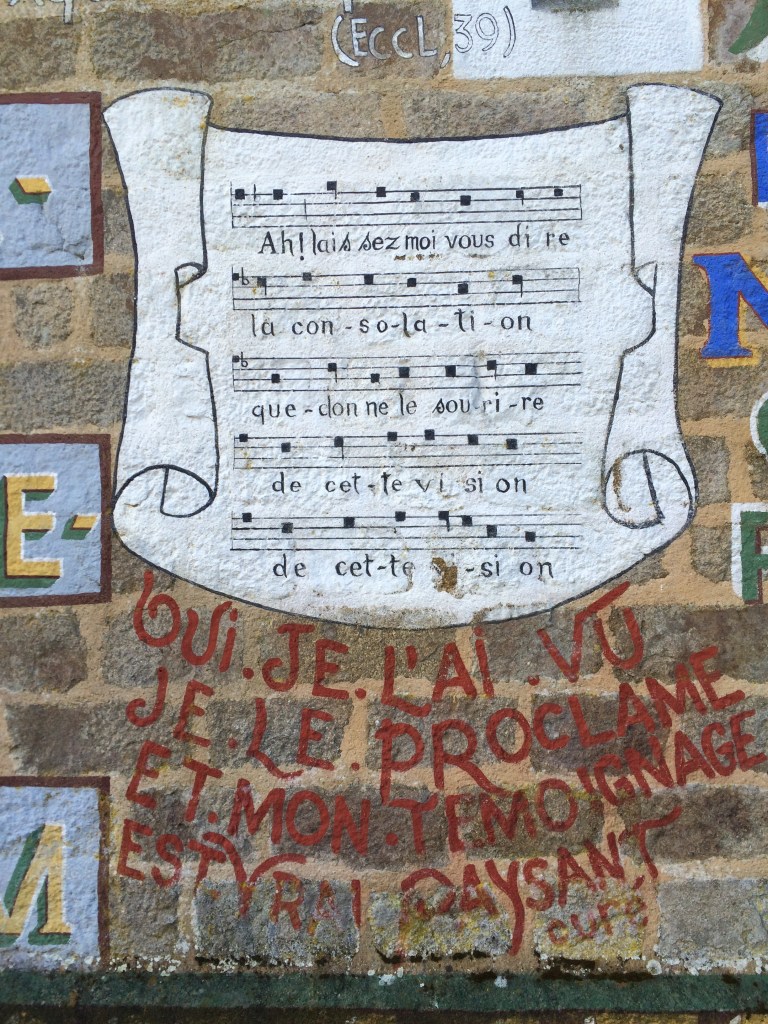 (ECCL, 39)
Ah! lais sez moi vous di re
la con-so-la-ti-on
que-don ne le sou-ri-re
de cet-te vi si on
de cet-te -si on
E-
M
N
OUi. JE. L'Ai. VU
JE. LE. PROCLAME
ET. MON. TEMOIGNAGE
EST VRAI PAYSANT
curé